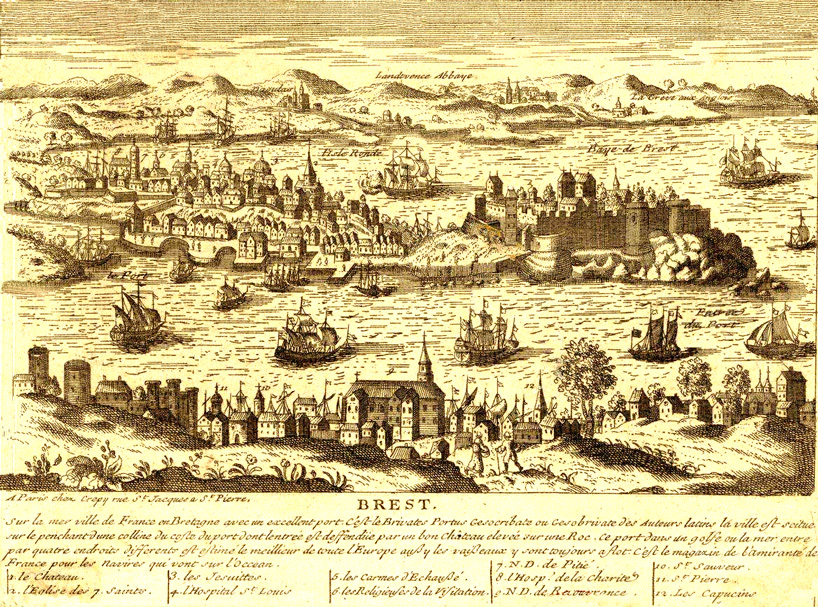 Landevence Abbaye
l'Isle Ronde
Baye de Brest
le Port
Entrée
du Port
A Paris chez Crepy rue St. Jacques a St. Pierre.
BREST.
Sur la mer ville de France en Bretagne avec un excellent port. C'est le Brivates Portus Gesocribate ou Gesobrivate des Auteurs latins la ville est scitue
sur le penchant d'une colline du coste du port dont l'entreé est deffendüe par un bon Château elevée sur une Roc. ce port dans un golfe ou la mer entre
par quatre endroits differents est estimé le meilleur de toute l'Europe aussy les vaisseaux y sont toujours a flot. C'est le magazin de l'amirante de
France pour les navires qui vont sur l'occean.
1. le Château.
2. l'Eglise des 7. Saints.
3. les Jesuittes.
4. l'Hospital St. Louis
5. les Carmes d'Echaussé.
6. les Religieuses de la Visitation.
7. N. D. de Pitié
8. l'Hosp.l de la Charité
9. N. D. de Recouvrence.
10. St. Sauveur.
11. St. Pierre.
12. Les Capucins